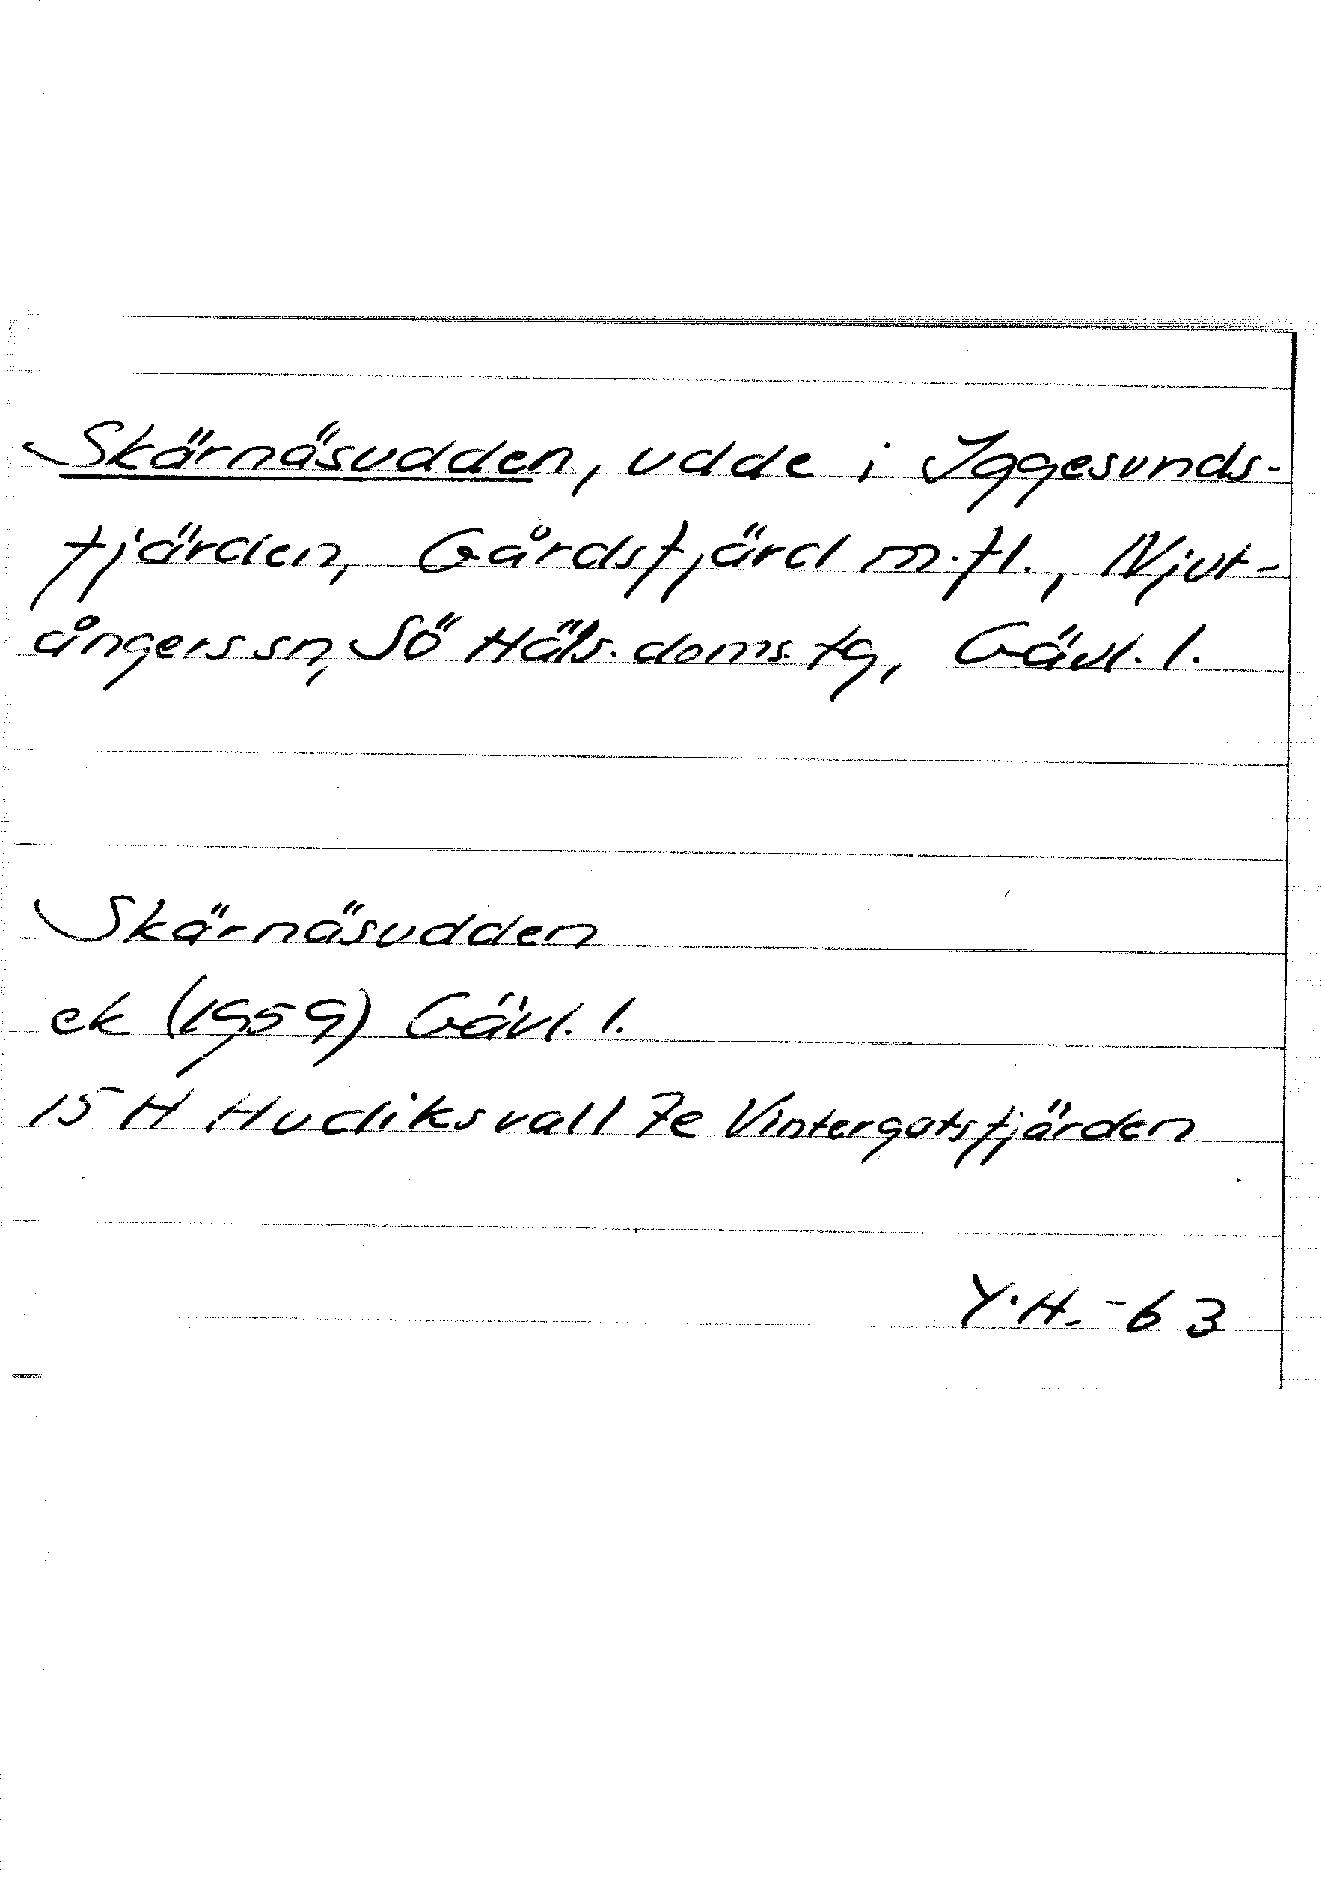 Skärnäsudden, udde i Iggesunds-
fjärden, Gårdsfjärd m.fl., Njut-
ångers sn, Sö Häls. doms. tg, Gävl. l.
Skärnäsudden
ek (1959) Gävl. l.
15 H Hudiksvall 7e Vintergatsfjärden
Y.H. -63